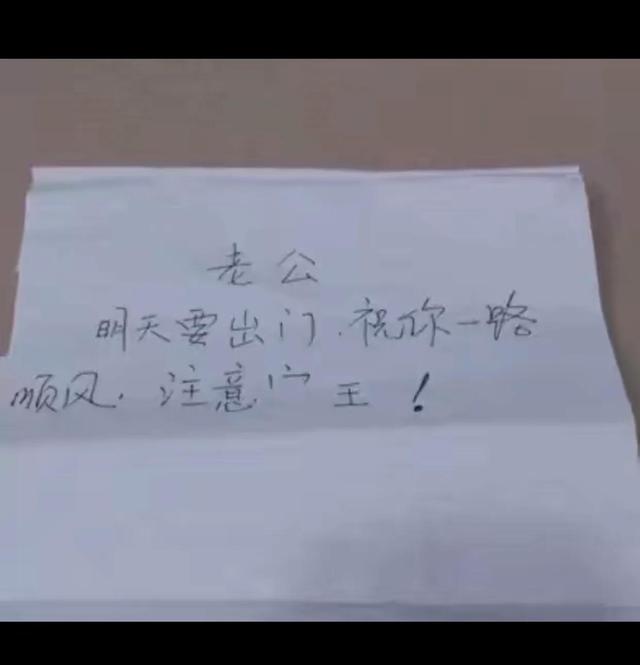 老公
明天要出门.祝你一路
顺风.注意宀王！